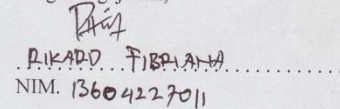 RIKARD FIBRIANA
NIM. 13604227011